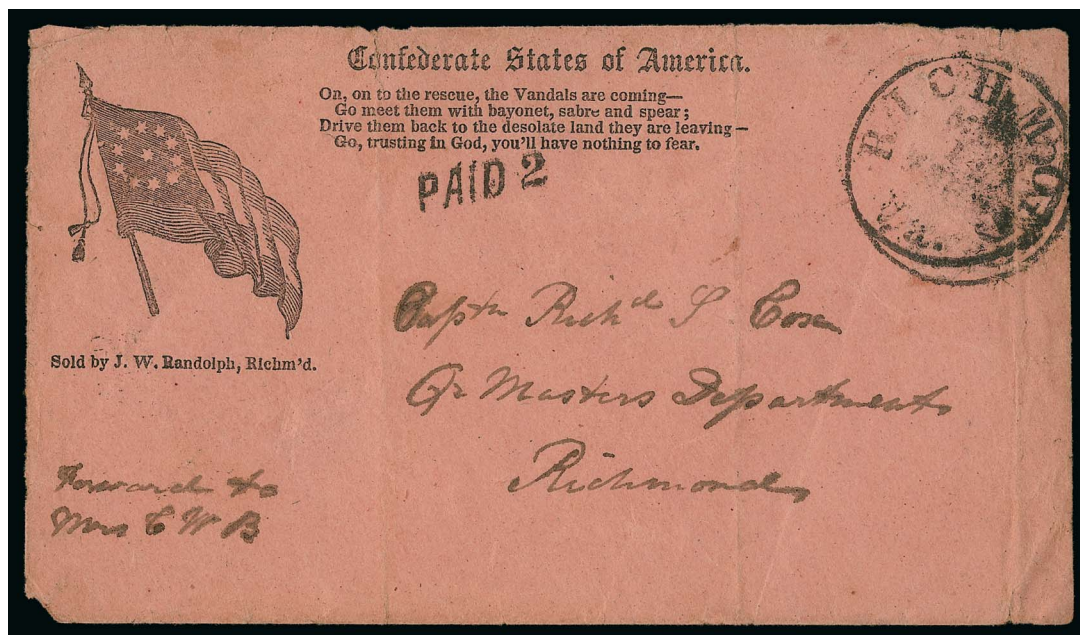 Confederate States of America.
On, on to the rescue, the Vandals are coming—
Go meet them with bayonet, sabre and spear;
Drive them back to the desolate land they are leaving—
Go, trusting in God, you'll have nothing to fear.
PAID 2
RICHMOND VA.
Sold by J. W. Randolph, Richm'd.
Captn Richd S. Cox
Qr Masters Department
Richmond
Forward to
Mrs C W B